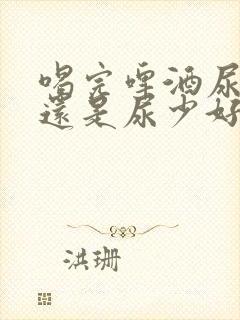 喝完啤酒尿
還是尿少好
洪珊